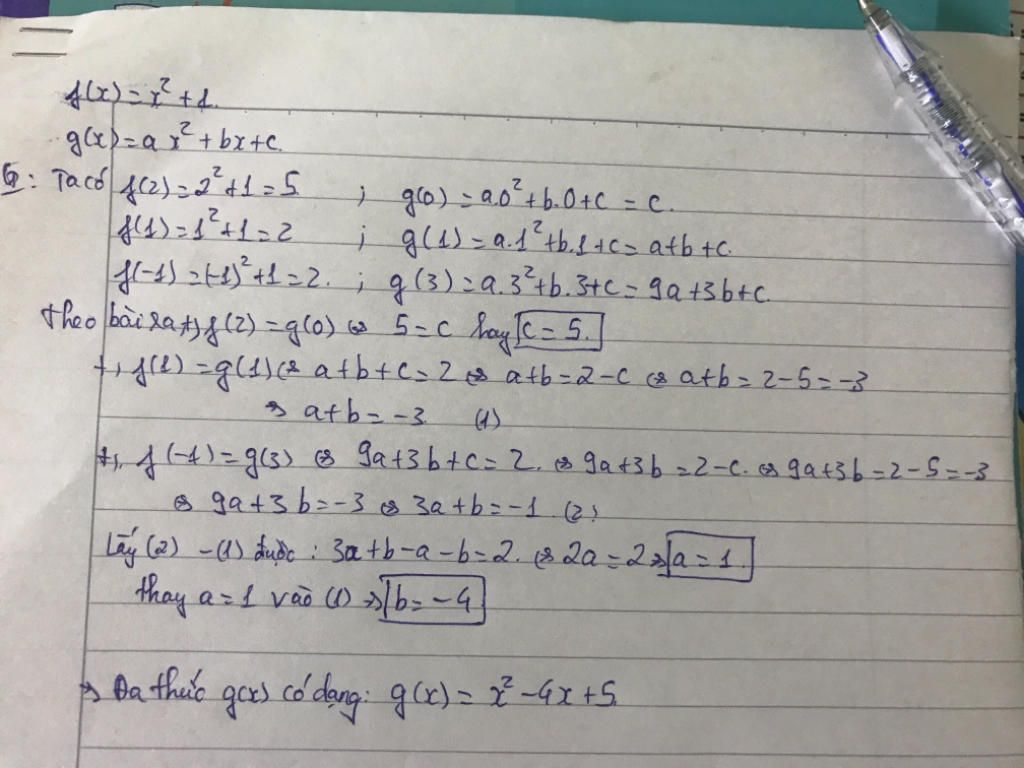 f(x) = x² + 1.
g(x) = a x² + bx + c.
G: Ta có f(2) = 2² + 1 = 5 ; g(0) = a.0² + b.0 + c = c.
f(1) = 1² + 1 = 2 ; g(1) = a.1² + b.1 + c = a + b + c.
f(-1) = (-1)² + 1 = 2. ; g(3) = a.3² + b.3 + c = 9a + 3b + c.
theo bài ra +, f(2) = g(0) ⇔ 5 = c hay c = 5.
+, f(1) = g(1) ⇔ a + b + c = 2 ⇔ a + b = 2 - c ⇔ a + b = 2 - 5 = -3
⇒ a + b = -3 (1)
+, f(-1) = g(3) ⇔ 9a + 3b + c = 2. ⇔ 9a + 3b = 2 - c. ⇔ 9a + 3b = 2 - 5 = -3
⇔ 9a + 3b = -3 ⇔ 3a + b = -1 (2)
Lấy (2) - (1) được : 3a + b - a - b = 2. ⇔ 2a = 2 ⇒ a = 1.
thay a = 1 vào (1) ⇒ b = -4
⇒ Đa thức g(x) có dạng: g(x) = x² - 4x + 5.